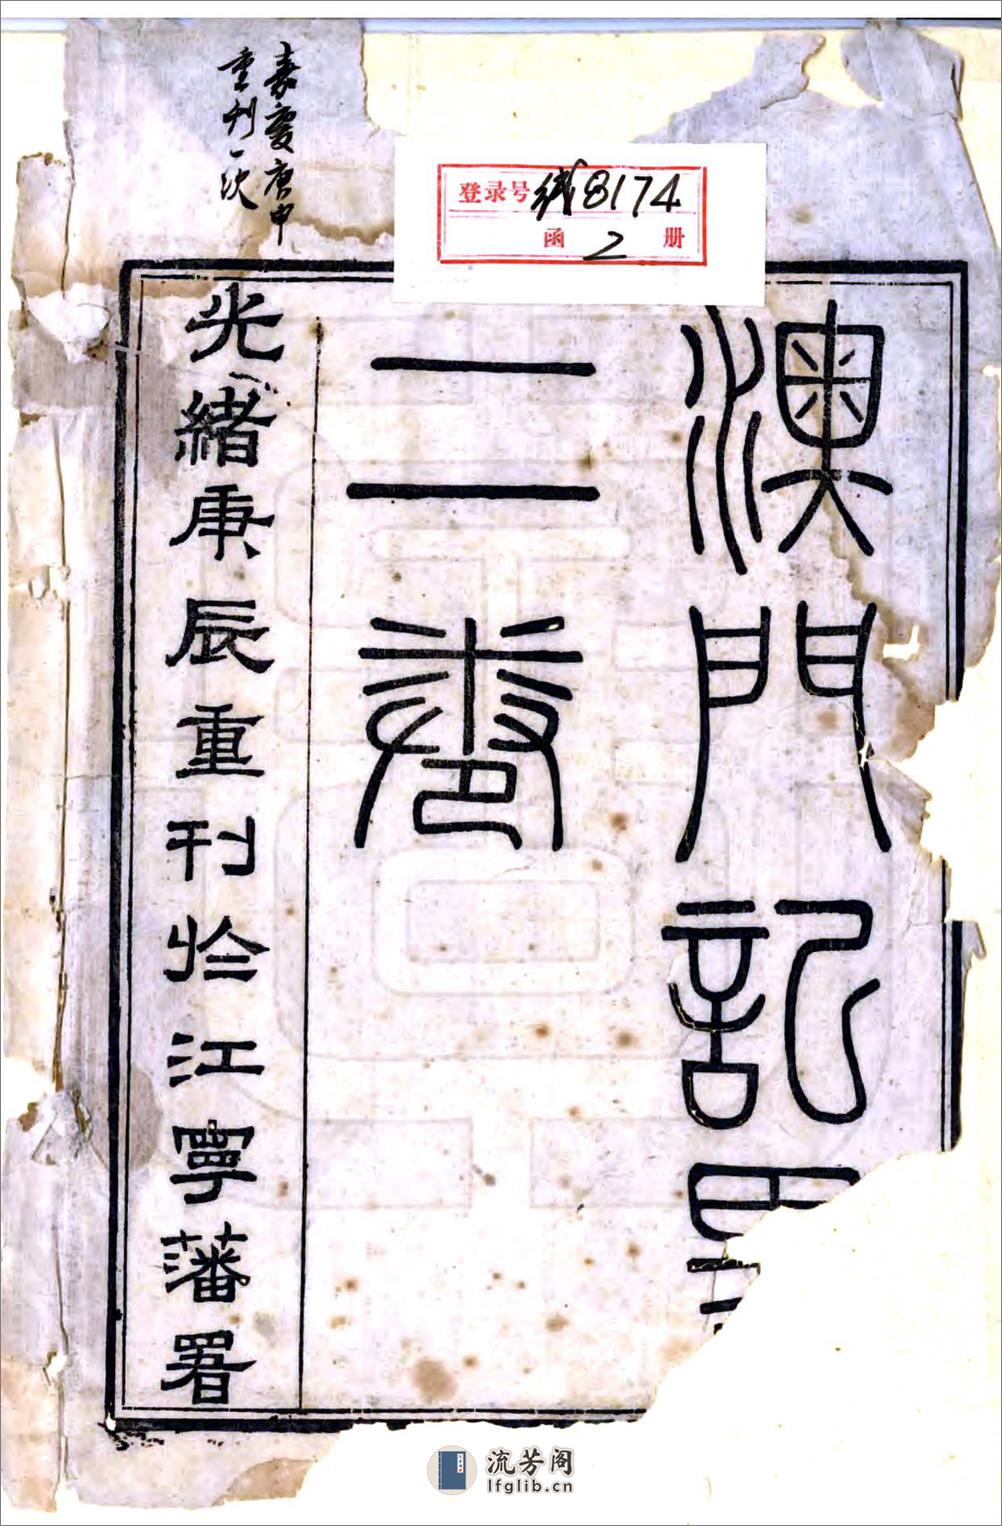 嘉慶庚申
重刊一次
登录号 线8174
函 2 册
澳門記
二卷
光緒庚辰重刊於江寧藩署
流芳阁
lfglib.cn